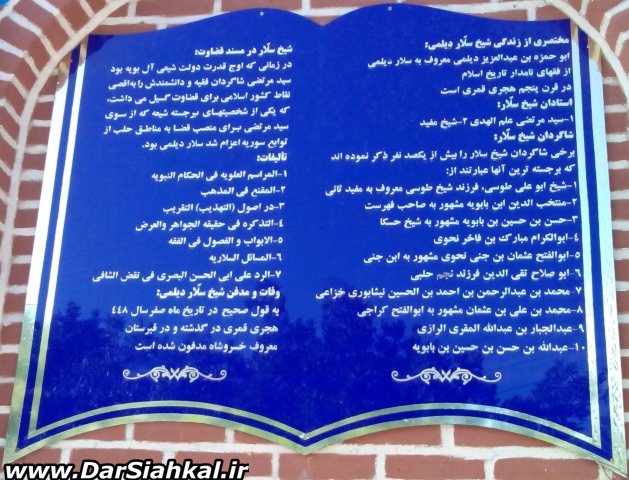 مختصری از زندگی شیخ سلّار دیلمی:
ابو حمزه بن عبدالعزیز دیلمی معروف به سلار دیلمی
از فقهای نامدار تاریخ اسلام
در قرن پنجم هجری قمری است
استادان شیخ سلّار:
۱-سید مرتضی علم الهدی ۲-شیخ مفید
شاگردان شیخ سلّار:
برخی شاگردان شیخ سلار را بیش از یکصد نفر ذکر نموده اند
که برجسته ترین آنها عبارتند از:
۱-شیخ ابو علی طوسی، فرزند شیخ طوسی معروف به مفید ثانی
۲-منتخب الدین ابن بابویه مشهور به صاحب فهرست
۳-حسن بن حسین بن بابویه مشهور به شیخ حسکا
۴-ابوالکرام مبارک بن فاخر نحوی
۵-ابوالفتح عثمان بن جنی نحوی مشهور به ابن جنی
۶-ابو صلاح تقی الدین فرزند نجم حلبی
۷-محمد بن عبدالرحمن بن احمد بن الحسین نیشابوری خزاعی
۸-محمد بن علی بن عثمان مشهور به ابوالفتح کراجی
۹-عبدالجبار بن عبدالله المقری الرازی
۱۰-عبدالله بن حسن بن حسین بن بابویه
شیخ سلّار در مسند قضاوت:
در زمانی که اوج قدرت دولت شیعی آل بویه بود
سید مرتضی شاگردان فقیه و دانشمندش را به اقصی
نقاط کشور اسلامی برای قضاوت گسیل می داشت،
که یکی از شخصیتهای برجسته شیعه که از سوی
سید مرتضی برای منصب قضا به مناطق حلب از
توابع سوریه اعزام شد سلار دیلمی بود.
تالیفات:
۱-المراسم العلویه فی الحکام النبویه
۲-المقنع فی المذهب
۳-در اصول (التهذیب) التقریب
۴-التذکره فی حقیقه الجواهر والعرض
۵-الابواب و الفصول فی الفقه
۶-المسائل السلاریه
۷-الرد علی ابی الحسن البصری فی نقض الشافی
وفات و مدفن شیخ سلّار دیلمی:
به قول صحیح در تاریخ ماه صفر سال ۴۴۸
هجری قمری در گذشته و در قبرستان
معروف خسروشاه مدفون شده است
www.DarSiahkal.ir